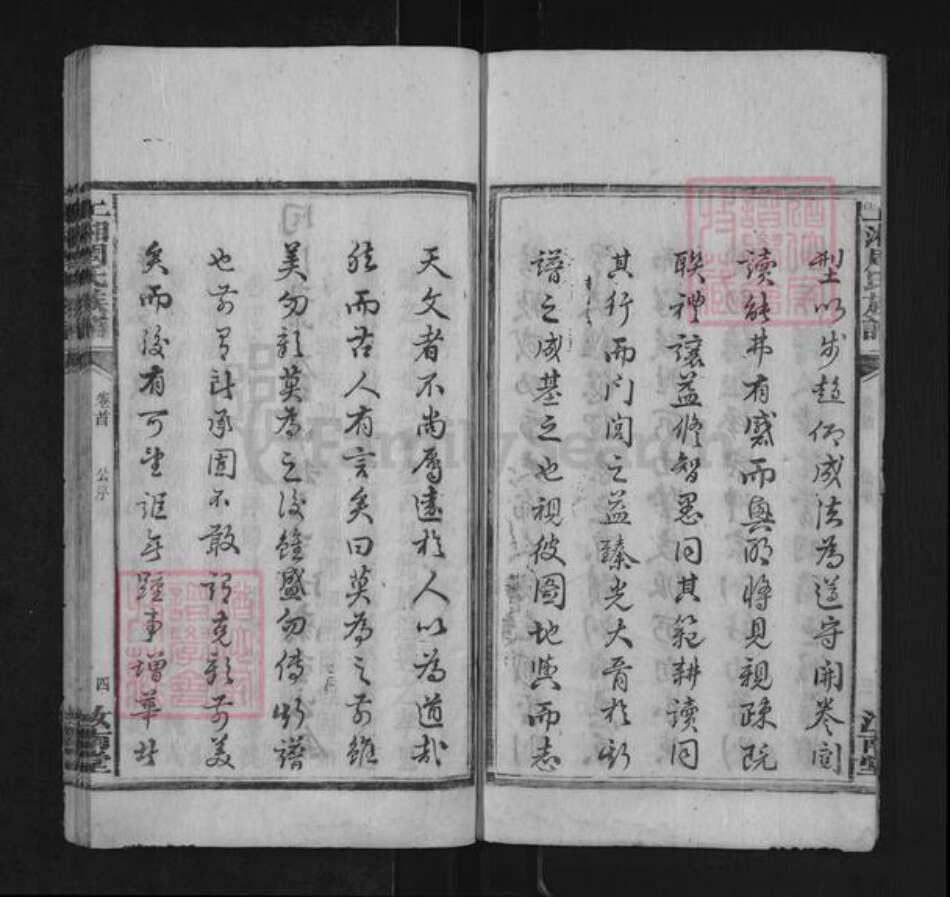 型以步趨仰成法為遵守開卷閱
讀能弗有感而興耶將見親疎既
聯禮讓益修智愚同其範耕讀同
其行而門閭之益臻光大胥於斯
譜之成基之也視彼圖地輿而志
天文者不尚膚遠於人以為道哉
然而古人有言矣曰莫為之前雖
美勿彰莫為之後雖盛勿傳斯譜
也前有所承固不敢謂克彰前美
矣而後有可望詎無踵事增華者
上湘周氏族譜
卷首
公序
四
汝南堂